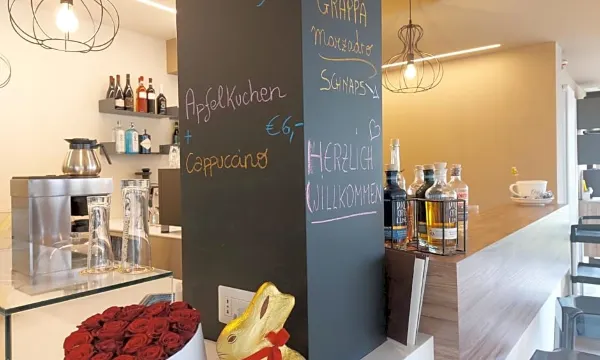 Apfelkuchen
+
€6,-
Cappuccino
GRAPPA
Marzadro
SCHNAPS
HERZLICH
WILLKOMMEN